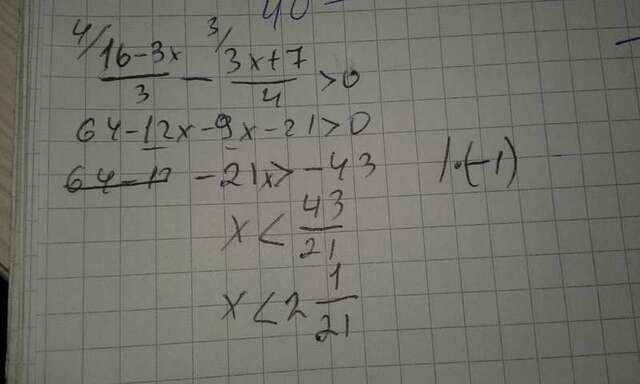 40 -
4/ 16-3x/3 - 3/ 3x+7/4 > 0
64-12x-9x-21>0
64-17 -21x>-43 |·(-1)
x < 43/21
x < 2 1/21